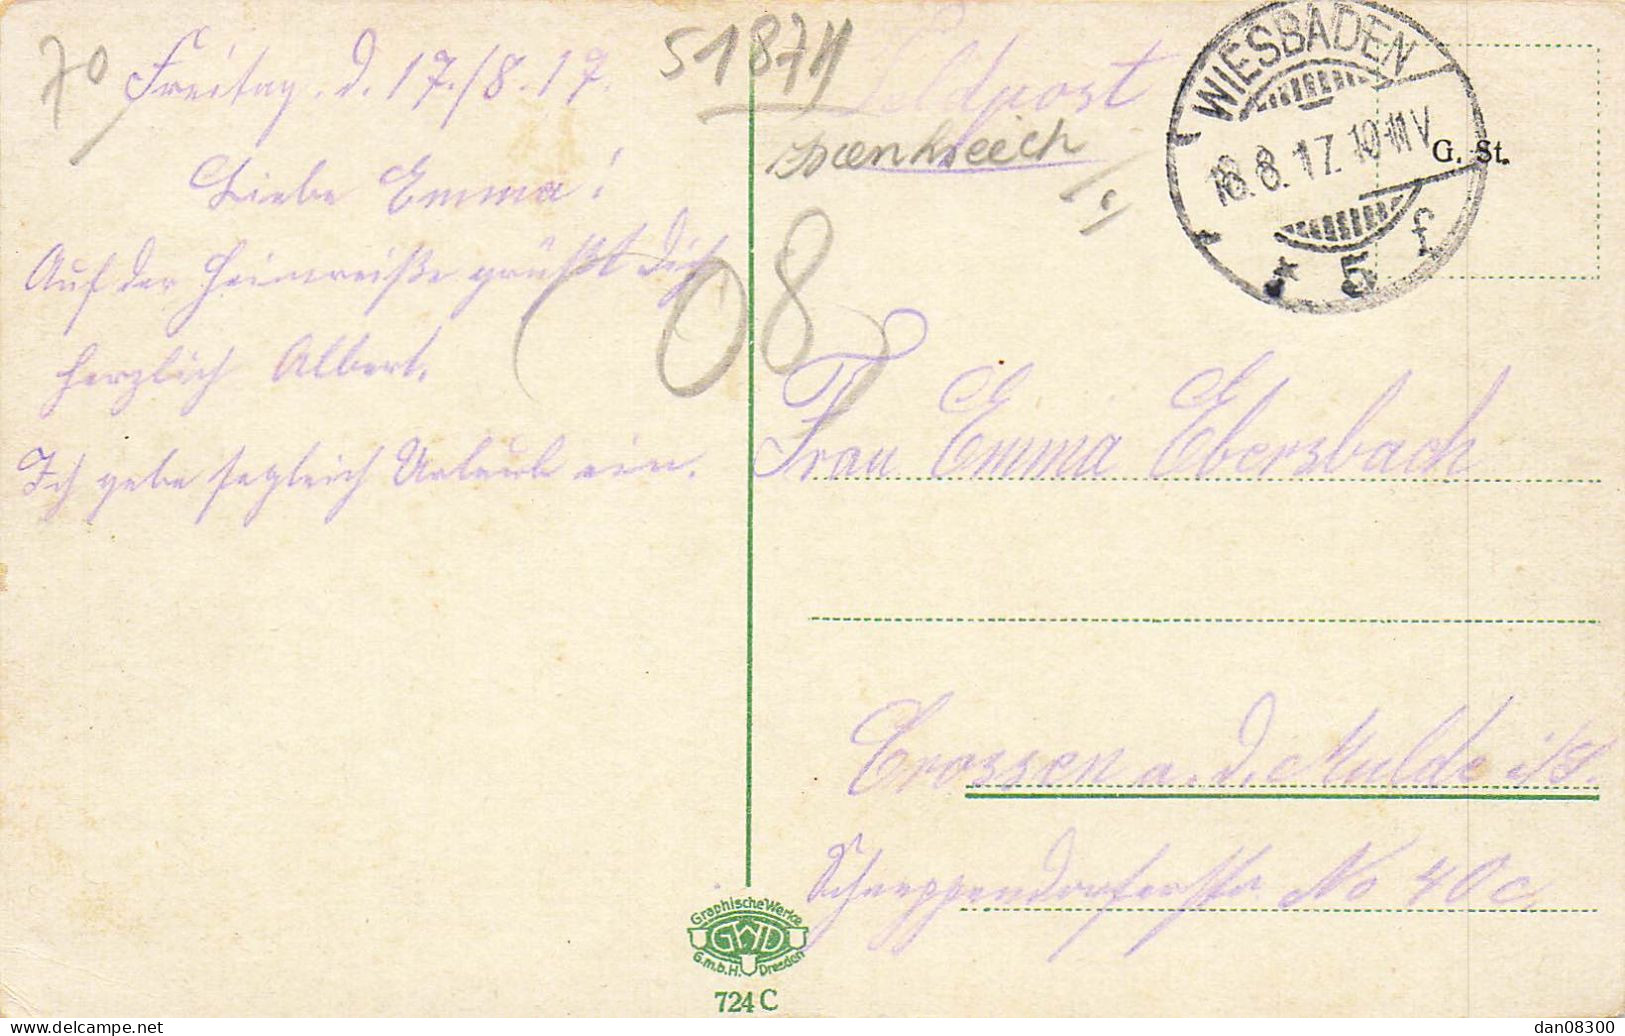 70
Freitag. d. 17./8.17.
Liebe Emma!
Auf der Heimreiße grüßt Dich
herzlich Albert.
Ich gebe sogleich Urlaub ein.
51874
Feldpost
08
WIESBADEN
18.8.17. 10-11 V
* 5 f
G. St.
Frau Emma Ebersbach
Crossen a. d. Mulde i/S.
Schneppendorferstr No 40c
Graphische Werke
GWD
G.m.b.H. Dresden
724 C
delcampe.net
dan08300